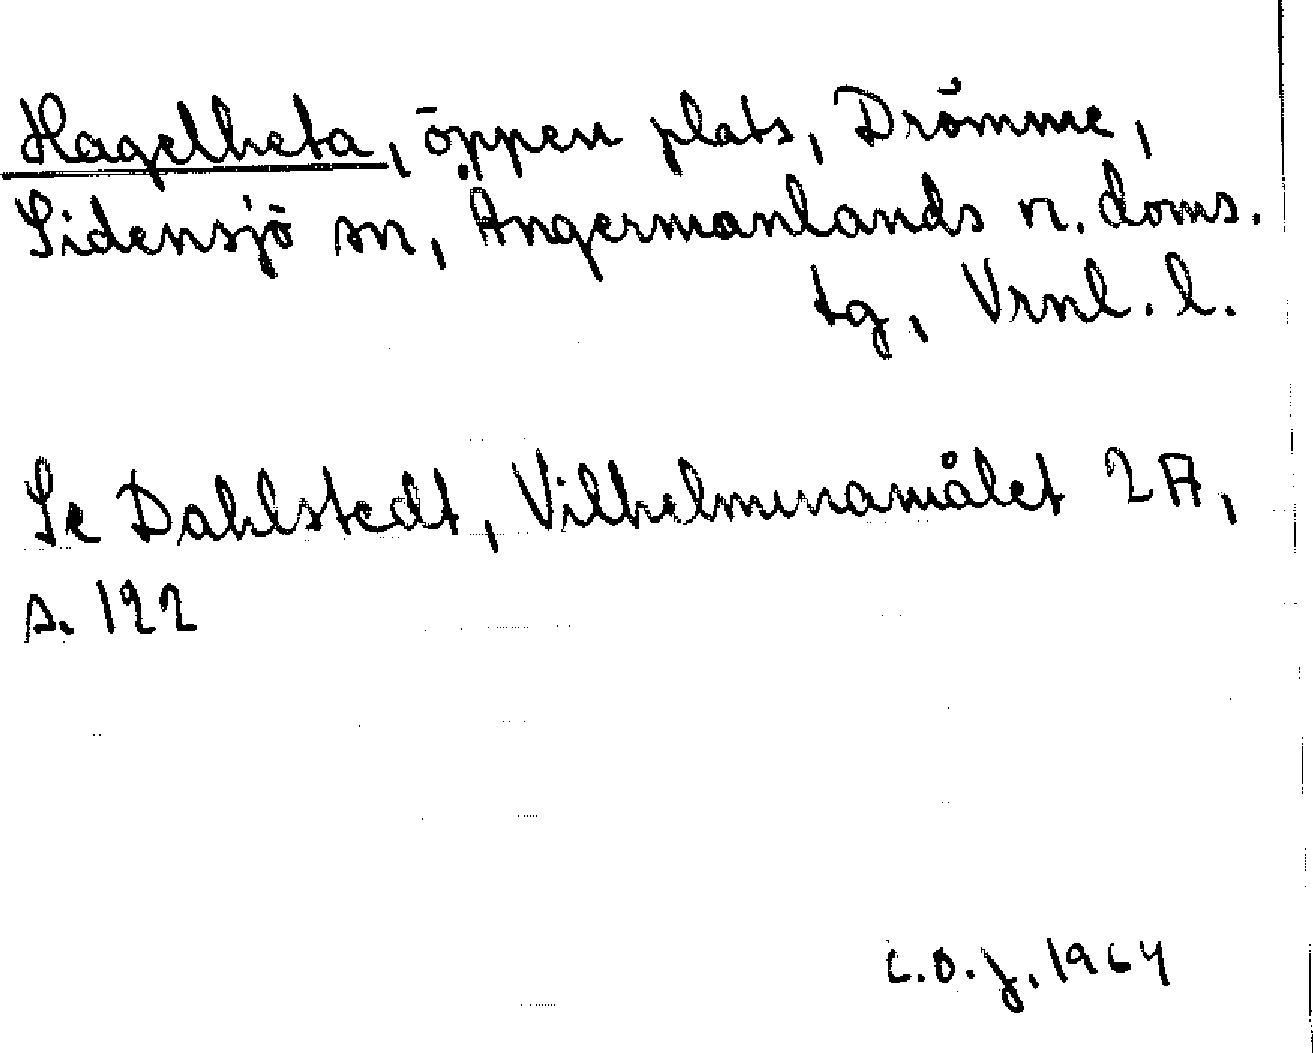 Hagelheta, öppen plats, Drömme,
Sidensjö sn, Ångermanlands n. doms.
tg, Vrnl. l.
Se Dahlstedt, Vilhelminamålet 2A,
s. 122
C.O.J. 1964